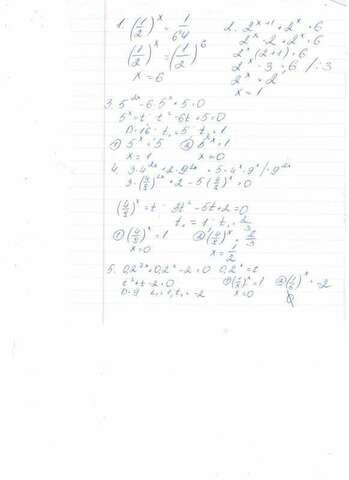 1. (1/2)^x = 1/64
(1/2)^x = (1/2)^6
x = 6
2. 2^(x+1) + 2^x = 6
2^x · 2 + 2^x = 6
2^x (2+1) = 6
2^x · 3 = 6 /:3
2^x = 2
x = 1
3. 5^2x - 6·5^x + 5 = 0
5^x = t · t² - 6t + 5 = 0
D = 16 · t₁ = 5, t₂ = 1
① 5^x = 5 ② 5^x = 1
x = 1 x = 0
4. 3·4^2x + 2·9^2x = 5·4^x·9^x /: 9^2x
3·(4/9)^2x + 2 - 5(4/9)^x = 0
(4/9)^x = t · 3t² - 5t + 2 = 0
t₁ = 1 · t₂ = 2/3
① (4/9)^x = 1 ② (4/9)^x = 2/3
x = 0 x = 1/2
5. 0,2^2x + 0,2^x - 2 = 0 0,2^x = t
t² + t - 2 = 0 ① (1/5)^x = 1 ② (1/5)^x = -2
D = 9 t₁ = 1, t₂ = -2 x = 0 ∅